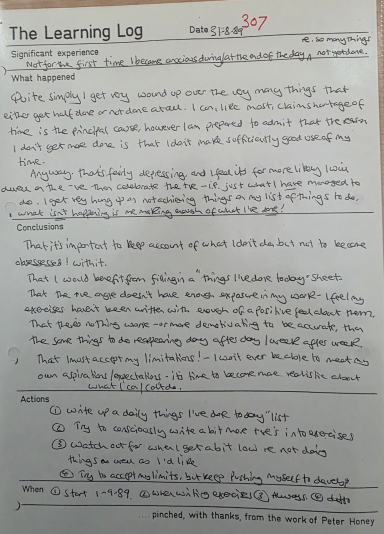 The Learning Log
Date 31-8-89
307
re. so many things
Significant experience
Not for the first time I became anxious during/at the end of the day, not yet done.
What happened
Quite simply I get very wound up over the very many things that
either get half done or not done at all. I can, like most, claim shortage of
time is the principal cause, however I am prepared to admit that the reason
I don't get more done is that I don't make sufficiently good use of my
time.
Anyway, that's fairly depressing, and I feel its far more likely I will
dwell on the -ve than celebrate the +ve - i.e. just what I have managed to
do. I get very hung up on not achieving things on my list of things to do.
What isn't happening is me making enough of what I've done!
Conclusions
That it's important to keep account of what I don't do, but not to become
obsessed! with it.
That I would benefit from filling in a "things I've done today" sheet.
That the +ve angle doesn't have enough exposure in my work - I feel my
exercises haven't been written with enough of a positive feel about them.
That there's nothing worse - or more demotivating to be accurate, than
the same things to do reappearing day after day / week after week.
That I must accept my limitations! - I won't ever be able to meet my
own aspirations/expectations - it's time to become more realistic about
what I can/can't do.
Actions
① Write up a daily "things I've done today" list
② Try to consciously write a bit more +ve's into exercises
③ Watch out for when I get a bit low re not doing
things as well as I'd like
④ Try to accept my limits, but keep pushing myself to develop
When ① Start 1-9-89. ② when writing exercises ③ always ④ ditto
.... pinched, with thanks, from the work of Peter Honey